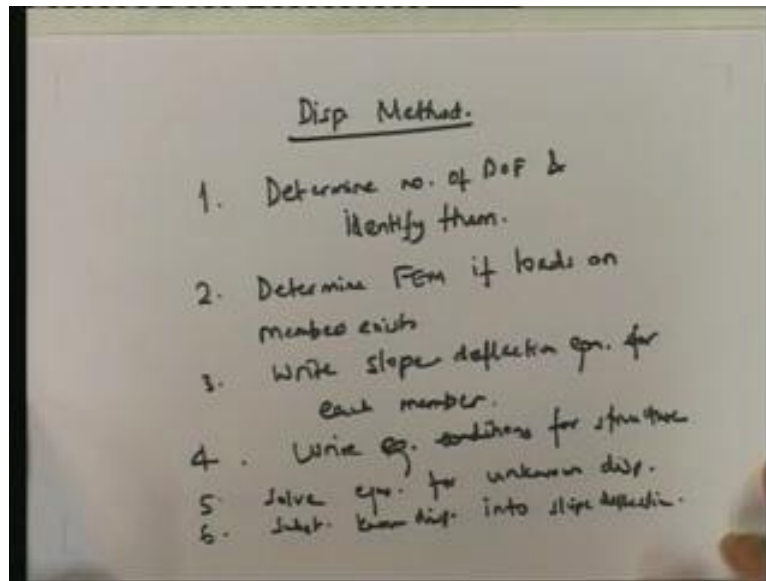 Disp Method.
1. Determine no. of DOF &
identify them.
2. Determine FEM if loads on
member exists
3. Write slope deflection eqn. for
each member.
4. Write eq. conditions for structure
5. Solve eqns. for unknown disp.
6. Subst. known disp. into slope deflection.